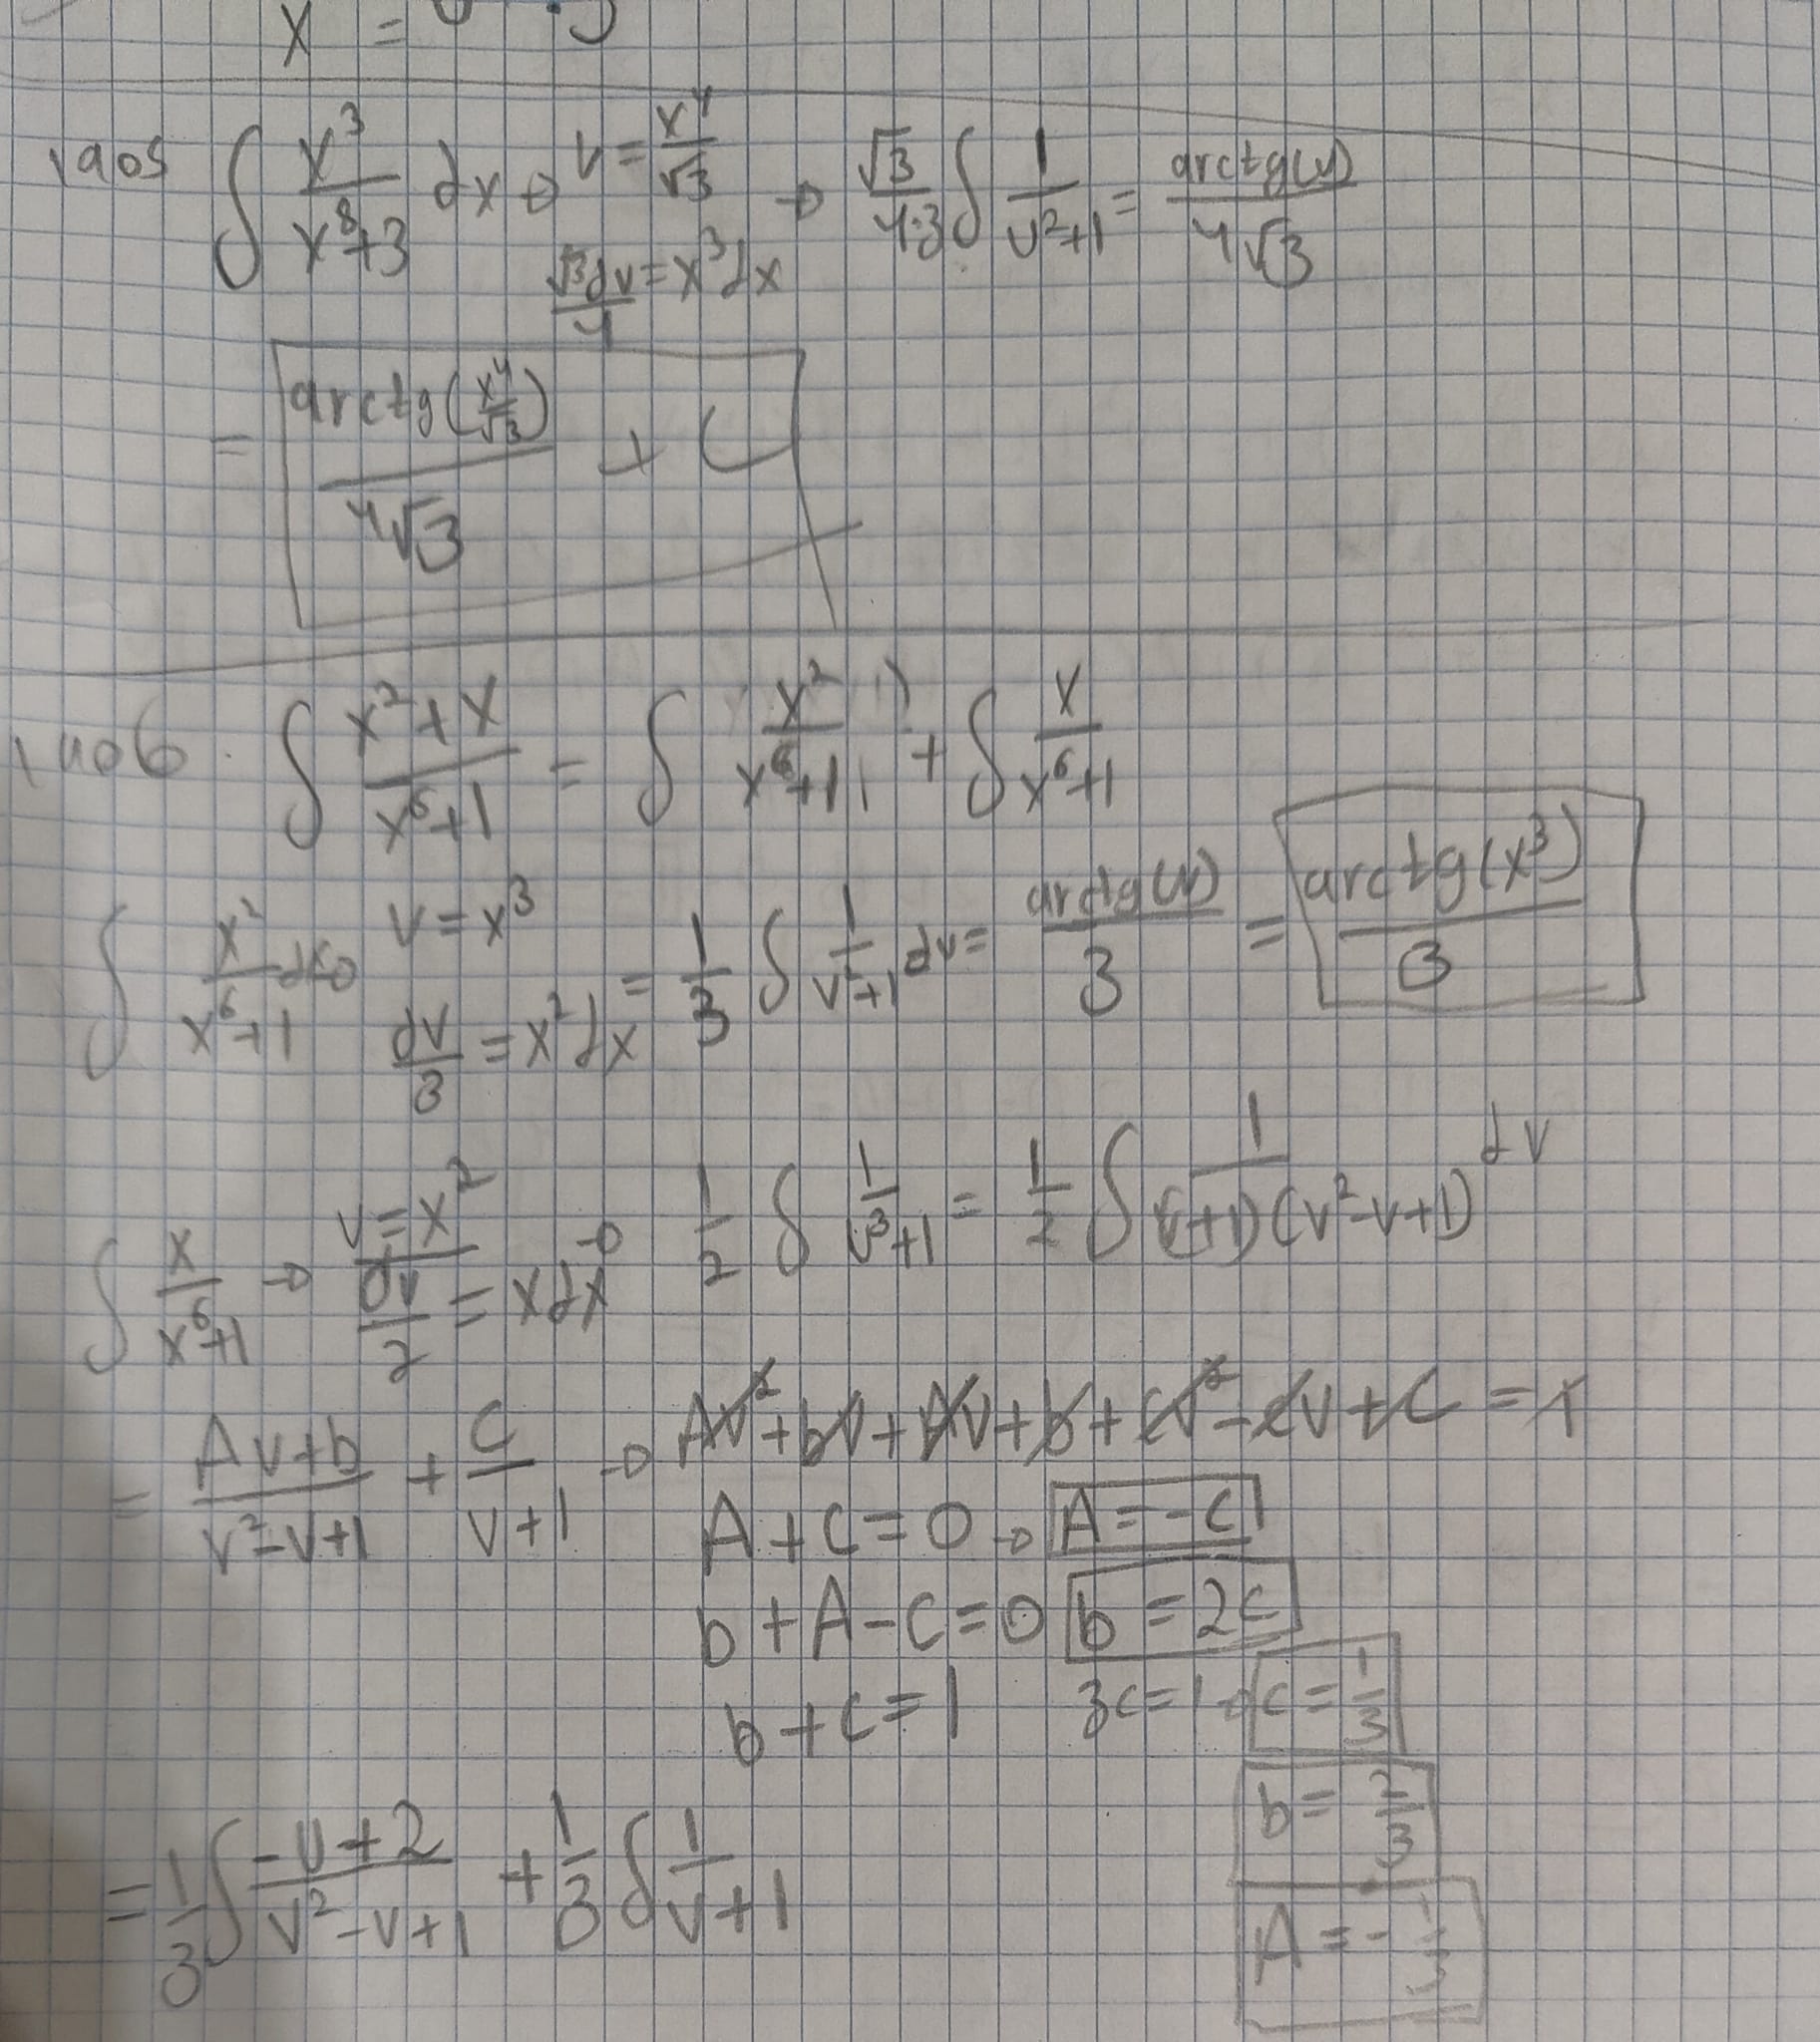 x =
1905 ∫ x³/(x⁸+3) dx → v = x⁴/√3 → √3/(4·3) ∫ 1/(v²+1) = arctg(v)/(4√3)
√3dv/4 = x³dx
= arctg(x⁴/√3)/(4√3) + C
1906 ∫ (x²+x)/(x⁶+1) = ∫ x²/(x⁶+1) + ∫ x/(x⁶+1)
∫ x²/(x⁶+1) dx → v = x³ dv/3 = x²dx = 1/3 ∫ 1/(v²+1) dv = arctg(v)/3 = arctg(x³)/3
∫ x/(x⁶+1) → v = x² dv/2 = xdx → 1/2 ∫ 1/(v³+1) = 1/2 ∫ 1/((v+1)(v²-v+1)) dv
= (Av+b)/(v²-v+1) + C/(v+1) → Av²+bv+Av+b+cv²-cv+C = 1
A+C=0 → A=-C
b+A-C=0 b=2C
b+C=1 3C=1 → C=1/3
b=2/3
= 1/3 ∫ (-v+2)/(v²-v+1) + 1/3 ∫ 1/(v+1)
A=-1/3